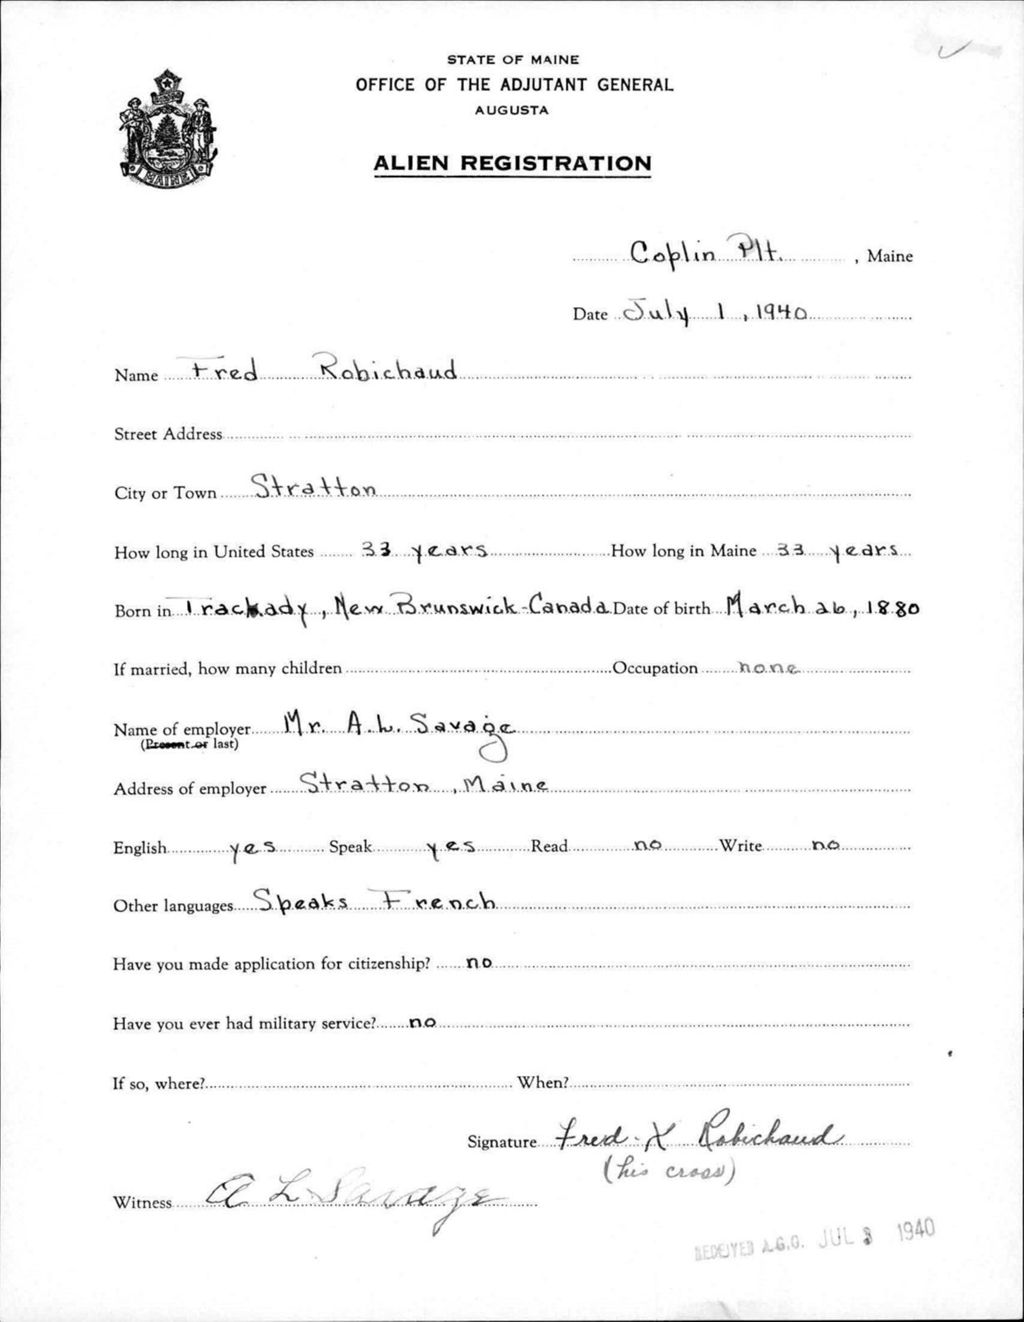 STATE OF MAINE
OFFICE OF THE ADJUTANT GENERAL
AUGUSTA
MAINE
ALIEN REGISTRATION
Coplin Plt. , Maine
Date July 1, 1940
Name Fred Robichaud
Street Address
City or Town Stratton
How long in United States 33 years How long in Maine 33 years
Born in Trackady, New Brunswick-Canada Date of birth March 26, 1880
If married, how many children Occupation none
Name of employer Mr. A.L. Savage
(Present or last)
Address of employer Stratton, Maine
English yes Speak yes Read no Write no
Other languages Speaks French
Have you made application for citizenship? no
Have you ever had military service? no
If so, where? When?
Signature Fred X Robichaud
(his cross)
Witness A L Savage
RECEIVED A.G.O. JUL 3 1940